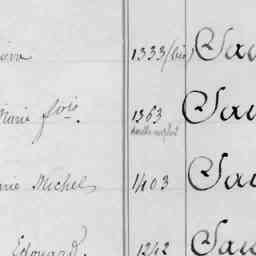 1333 (bis) Sau
Marie fois. 1363 Sau
Michel 1403 Sau
Edouard. 1242 Sau